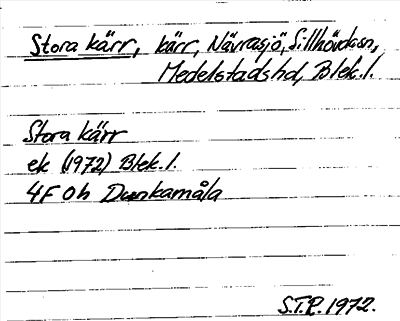 Stora kärr, kärr, Nävrasjö, Sillhövdasn,
Medelstadshd, Blek.l.
Stora kärr
ek (1972) Blek.l.
4F 0h Dunkamåla
S.T.P. 1972.